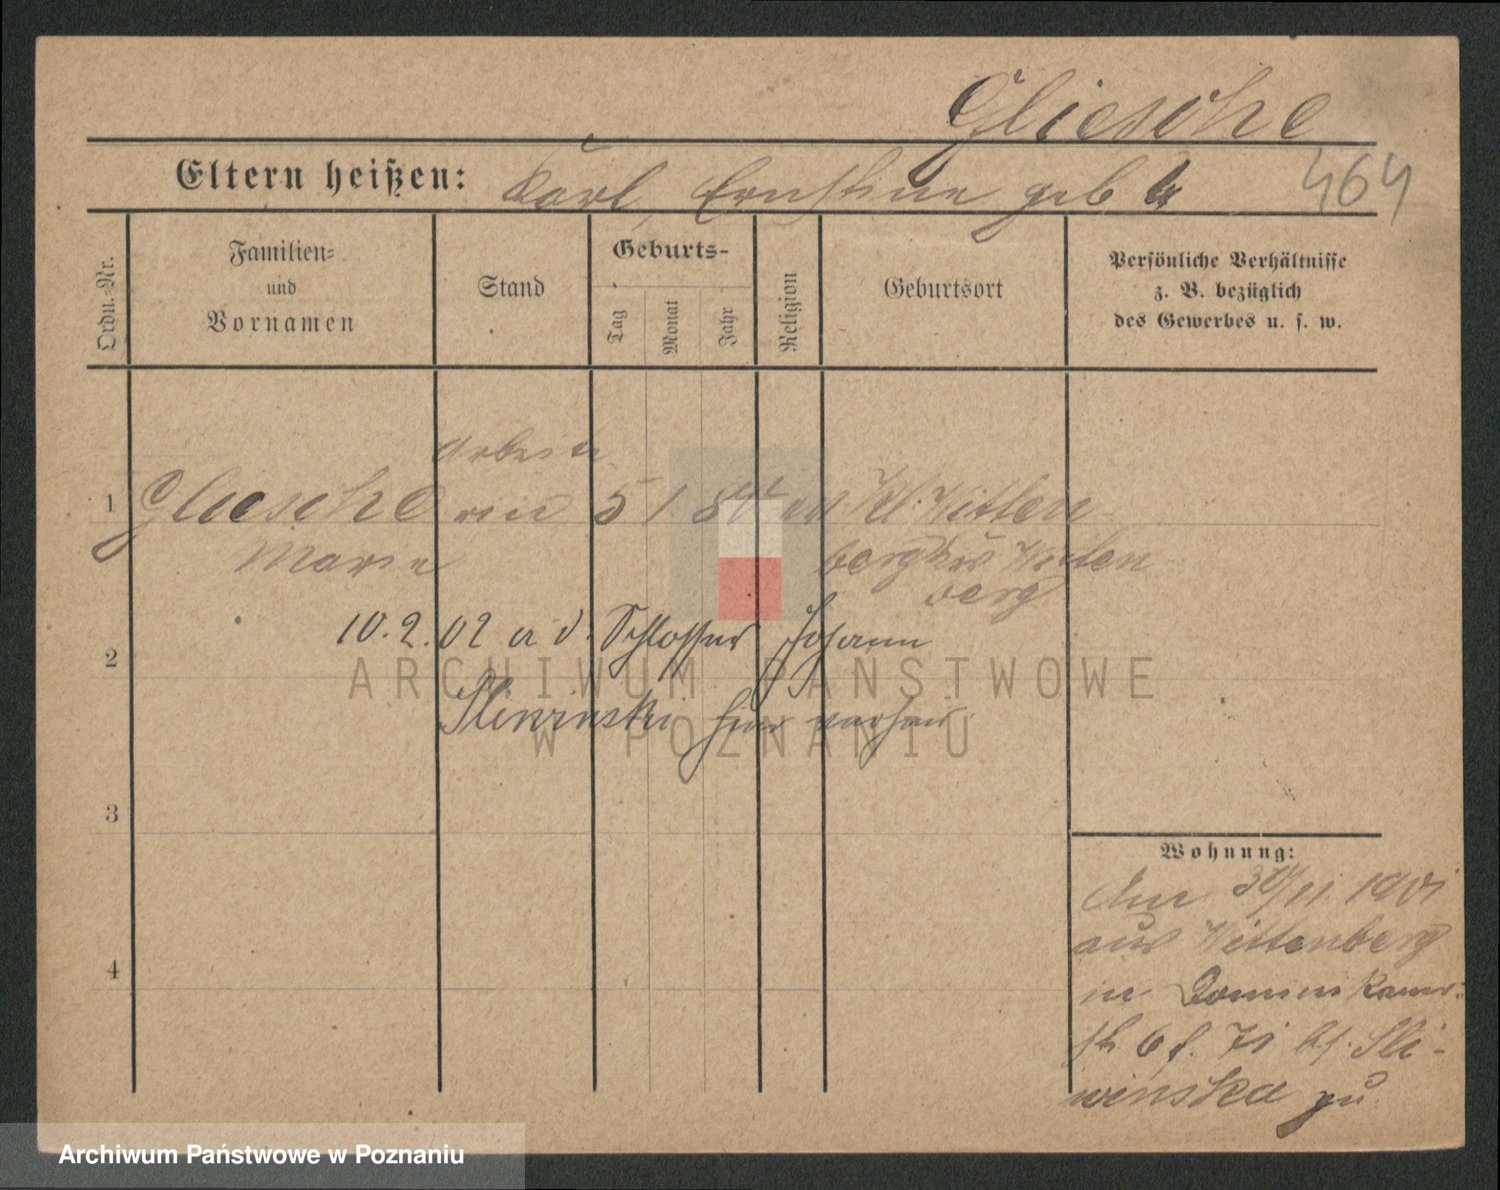 Gliesche
Eltern heißen: Karl, Ernstine geb
464
Ordn.-Nr.
Familien-
und
Vornamen
Stand
Geburts-
Tag
Monat
Jahr
Religion
Geburtsort
Persönliche Verhältnisse
z. B. bezüglich
des Gewerbes u. s. w.
Arbeite
1 Gliesche rin 5 1 ev Kl. Witten
Marie berg Witten
berg
10.2.02 a d. Schlosser Johann
2
Sliwinski hier verheir
3
Wohnung:
Am 30/11 1901
aus Wittenberg
4
in Dominikaner
str 6 bei Sli-
winska zu
ARCHIWUM PAŃSTWOWE
W POZNANIU
Archiwum Państwowe w Poznaniu